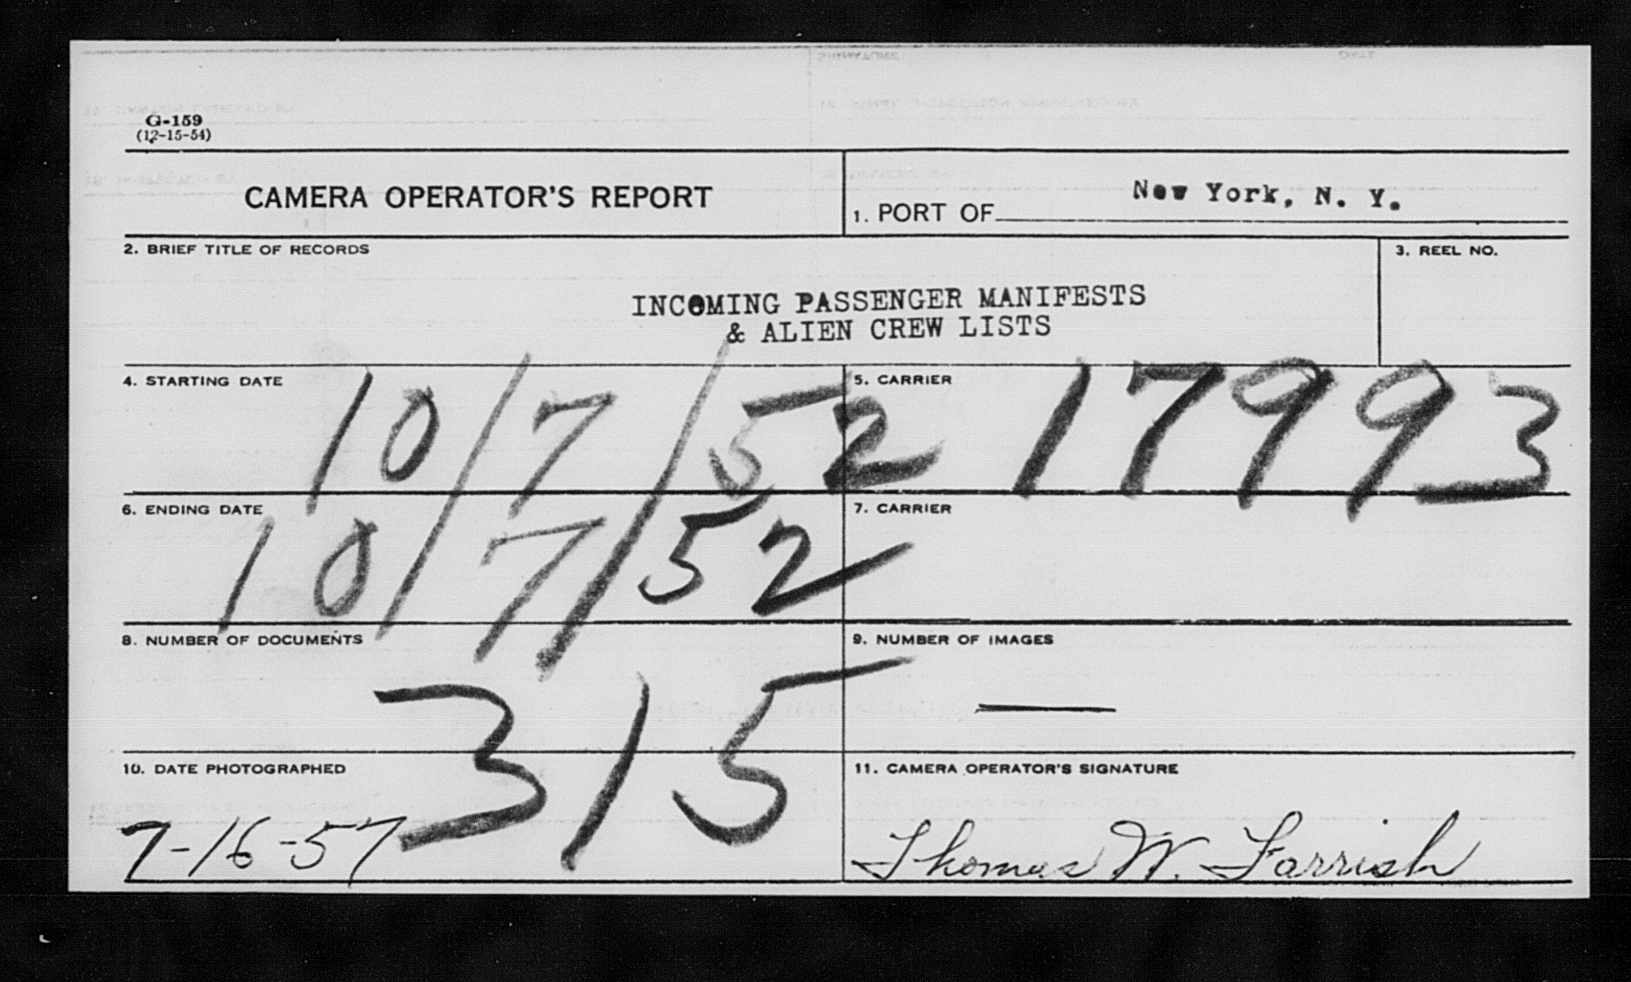 G-159
(12-15-54)
CAMERA OPERATOR'S REPORT
1. PORT OF New York, N. Y.
2. BRIEF TITLE OF RECORDS
3. REEL NO.
INCOMING PASSENGER MANIFESTS
& ALIEN CREW LISTS
4. STARTING DATE
10/7/52
5. CARRIER
17993
6. ENDING DATE
10/7/52
7. CARRIER
8. NUMBER OF DOCUMENTS
315
9. NUMBER OF IMAGES
—
10. DATE PHOTOGRAPHED
7-16-57
11. CAMERA OPERATOR'S SIGNATURE
Thomas W. Farrish